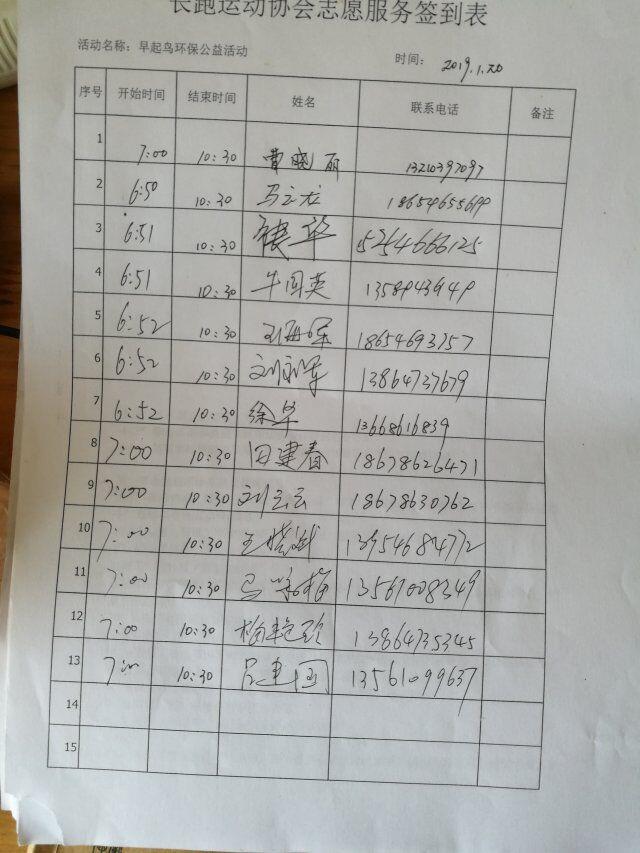 长跑运动协会志愿服务签到表
活动名称：早起鸟环保公益活动 时间：2019.1.20
序号 开始时间 结束时间 姓名 联系电话 备注
1 7:00 10:30 曹晓丽 13210397097
2 6:50 10:30 马立龙
3 6:51 10:30 15264666125
4 6:51 10:30 牛国英 13589943949
5 6:52 10:30 18654693757
6 6:52 10:30 13864737679
7 6:52 10:30 徐华 13668616839
8 7:00 10:30 田建春 18678626471
9 7:00 10:30 刘云云 18678630762
10 7:00 10:30 13954684772
11 7:00 10:30 13561008349
12 7:00 10:30 13864735345
13 7:00 10:30 吕建国 13561099637
14
15